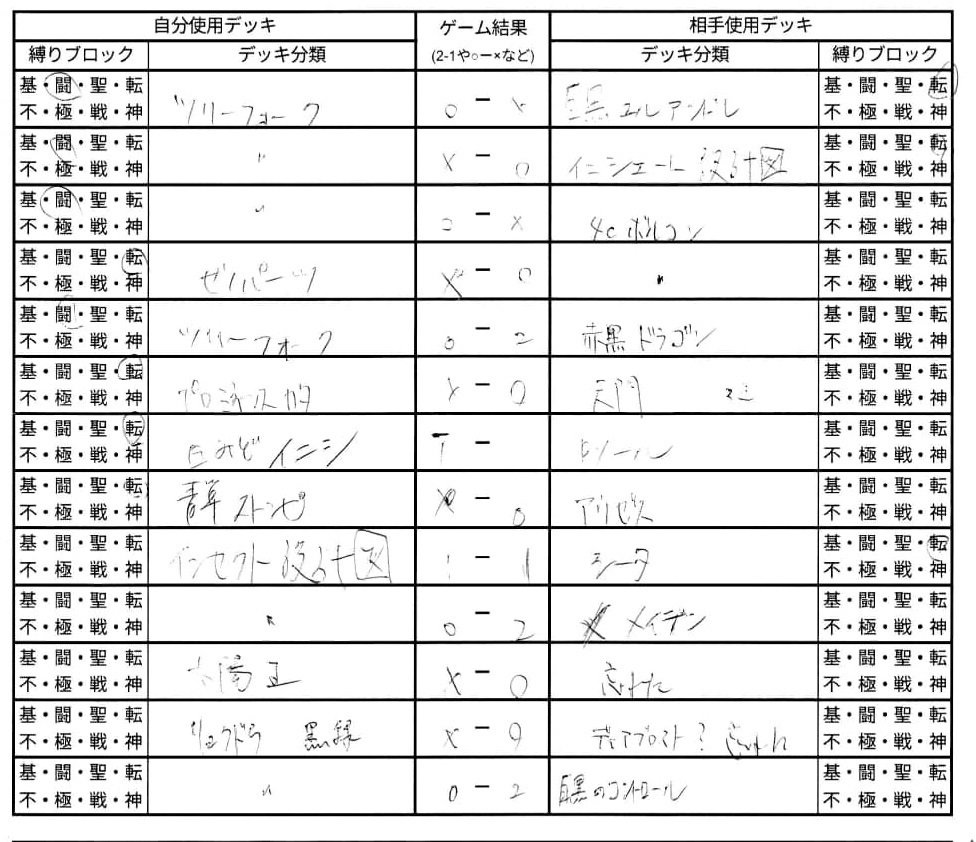 自分使用デッキ ゲーム結果 (2-1や○ー×など) 相手使用デッキ
縛りブロック デッキ分類 デッキ分類 縛りブロック
基・闘・聖・転 基・闘・聖・転
不・極・戦・神 ツリーフォーク ○ - × エルアンドレ 不・極・戦・神
基・闘・聖・転 基・闘・聖・転
不・極・戦・神 〃 × - ○ イニシェート 設計図 不・極・戦・神
基・闘・聖・転 基・闘・聖・転
不・極・戦・神 〃 ○ - × 4c ボルコン 不・極・戦・神
基・闘・聖・転 基・闘・聖・転
不・極・戦・神 ゼノパーツ × - ○ 〃 不・極・戦・神
基・闘・聖・転 基・闘・聖・転
不・極・戦・神 ツリーフォーク 0 - 2 赤黒 ドラゴン 不・極・戦・神
基・闘・聖・転 基・闘・聖・転
不・極・戦・神 × - ○ 天門 不・極・戦・神
基・闘・聖・転 基・闘・聖・転
不・極・戦・神 イニシ - 不・極・戦・神
基・闘・聖・転 基・闘・聖・転
不・極・戦・神 青単 ストンピ × - ○ 不・極・戦・神
基・闘・聖・転 基・闘・聖・転
不・極・戦・神 インセクト 設計図 1 - 1 シータ 不・極・戦・神
基・闘・聖・転 基・闘・聖・転
不・極・戦・神 〃 0 - 2 メイデン 不・極・戦・神
基・闘・聖・転 基・闘・聖・転
不・極・戦・神 太陽王 × - ○ 忘れた 不・極・戦・神
基・闘・聖・転 基・闘・聖・転
不・極・戦・神 リュウドラ 黒緑 × - ○ 忘れた 不・極・戦・神
基・闘・聖・転 基・闘・聖・転
不・極・戦・神 〃 0 - 2 白黒のコントロール 不・極・戦・神